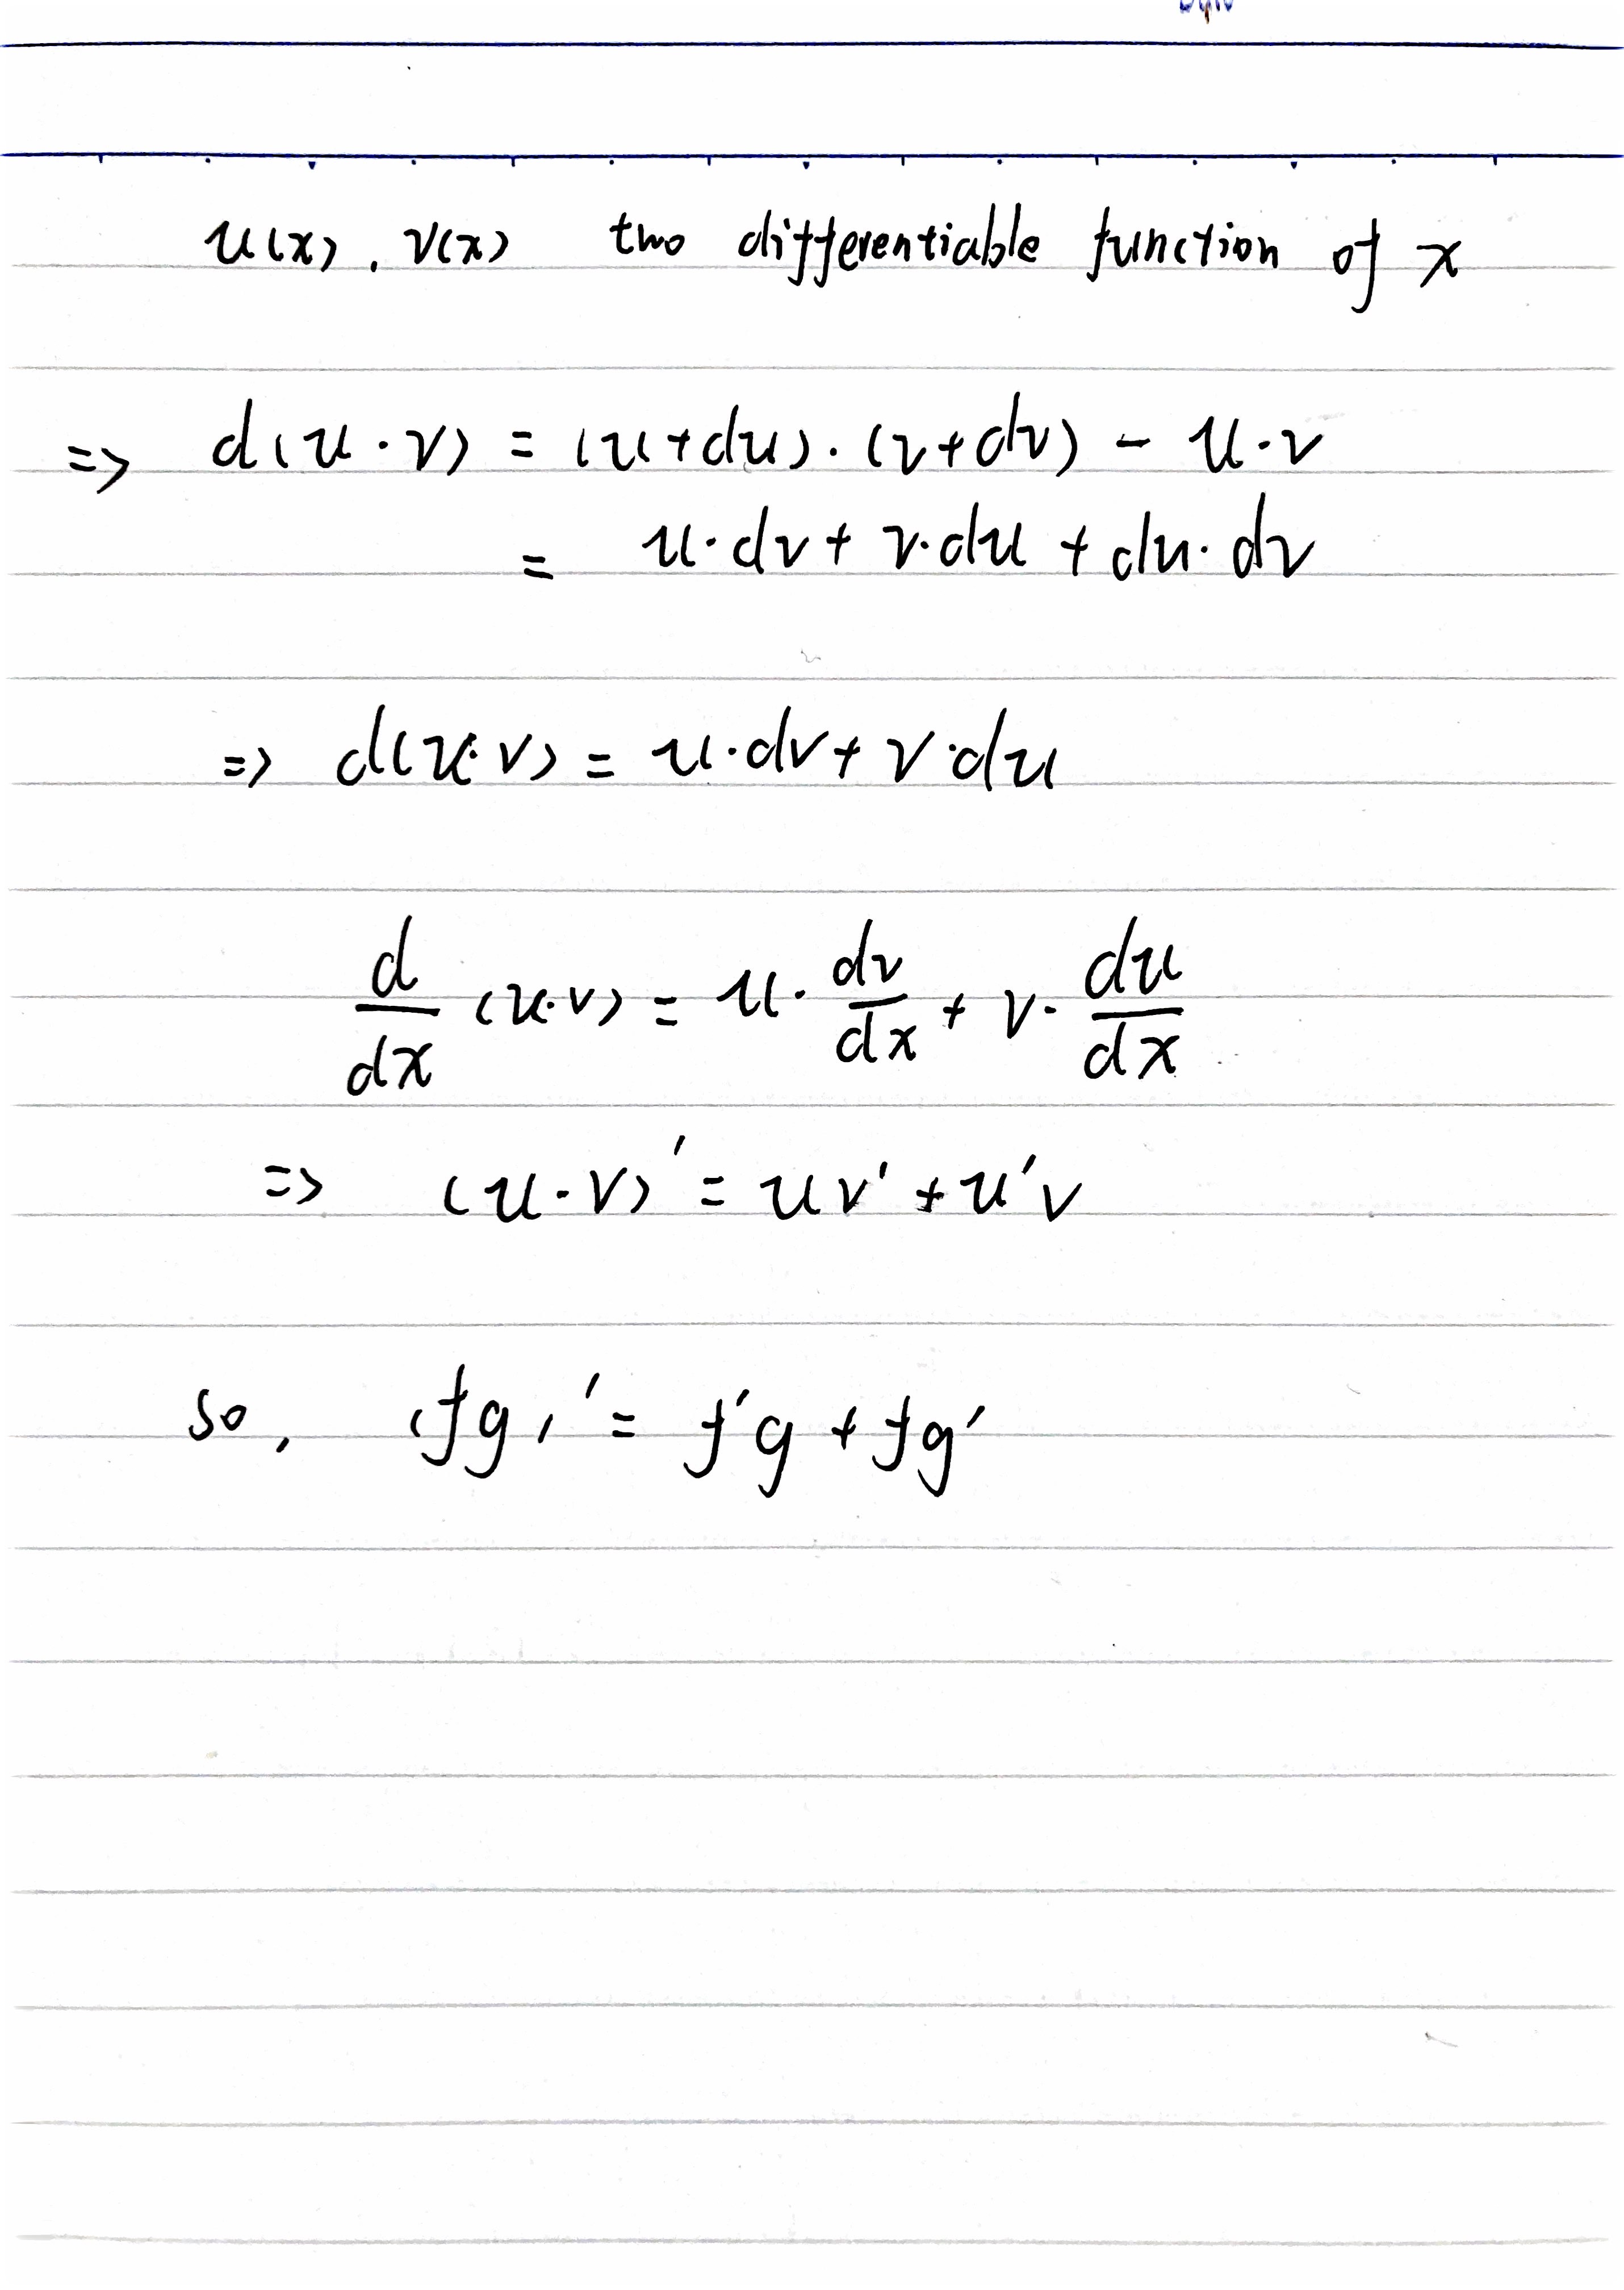 u(x), v(x) two differentiable function of x
=> d(u·v) = (u+du)·(v+dv) - u·v
= u·dv + v·du + du·dv
=> d(u·v) = u·dv + v·du
d/dx (u·v) = u· dv/dx + v· du/dx
=> (u·v)' = uv' + u'v
so, (fg)' = f'g + fg'